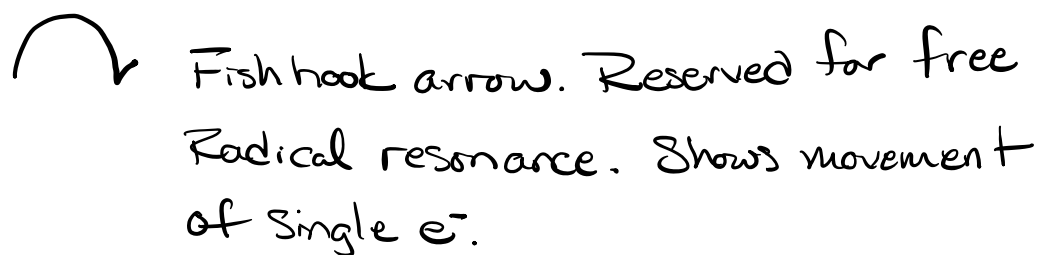 Fishhook arrow. Reserved for free
Radical resonance. Shows movement
of single e⁻.